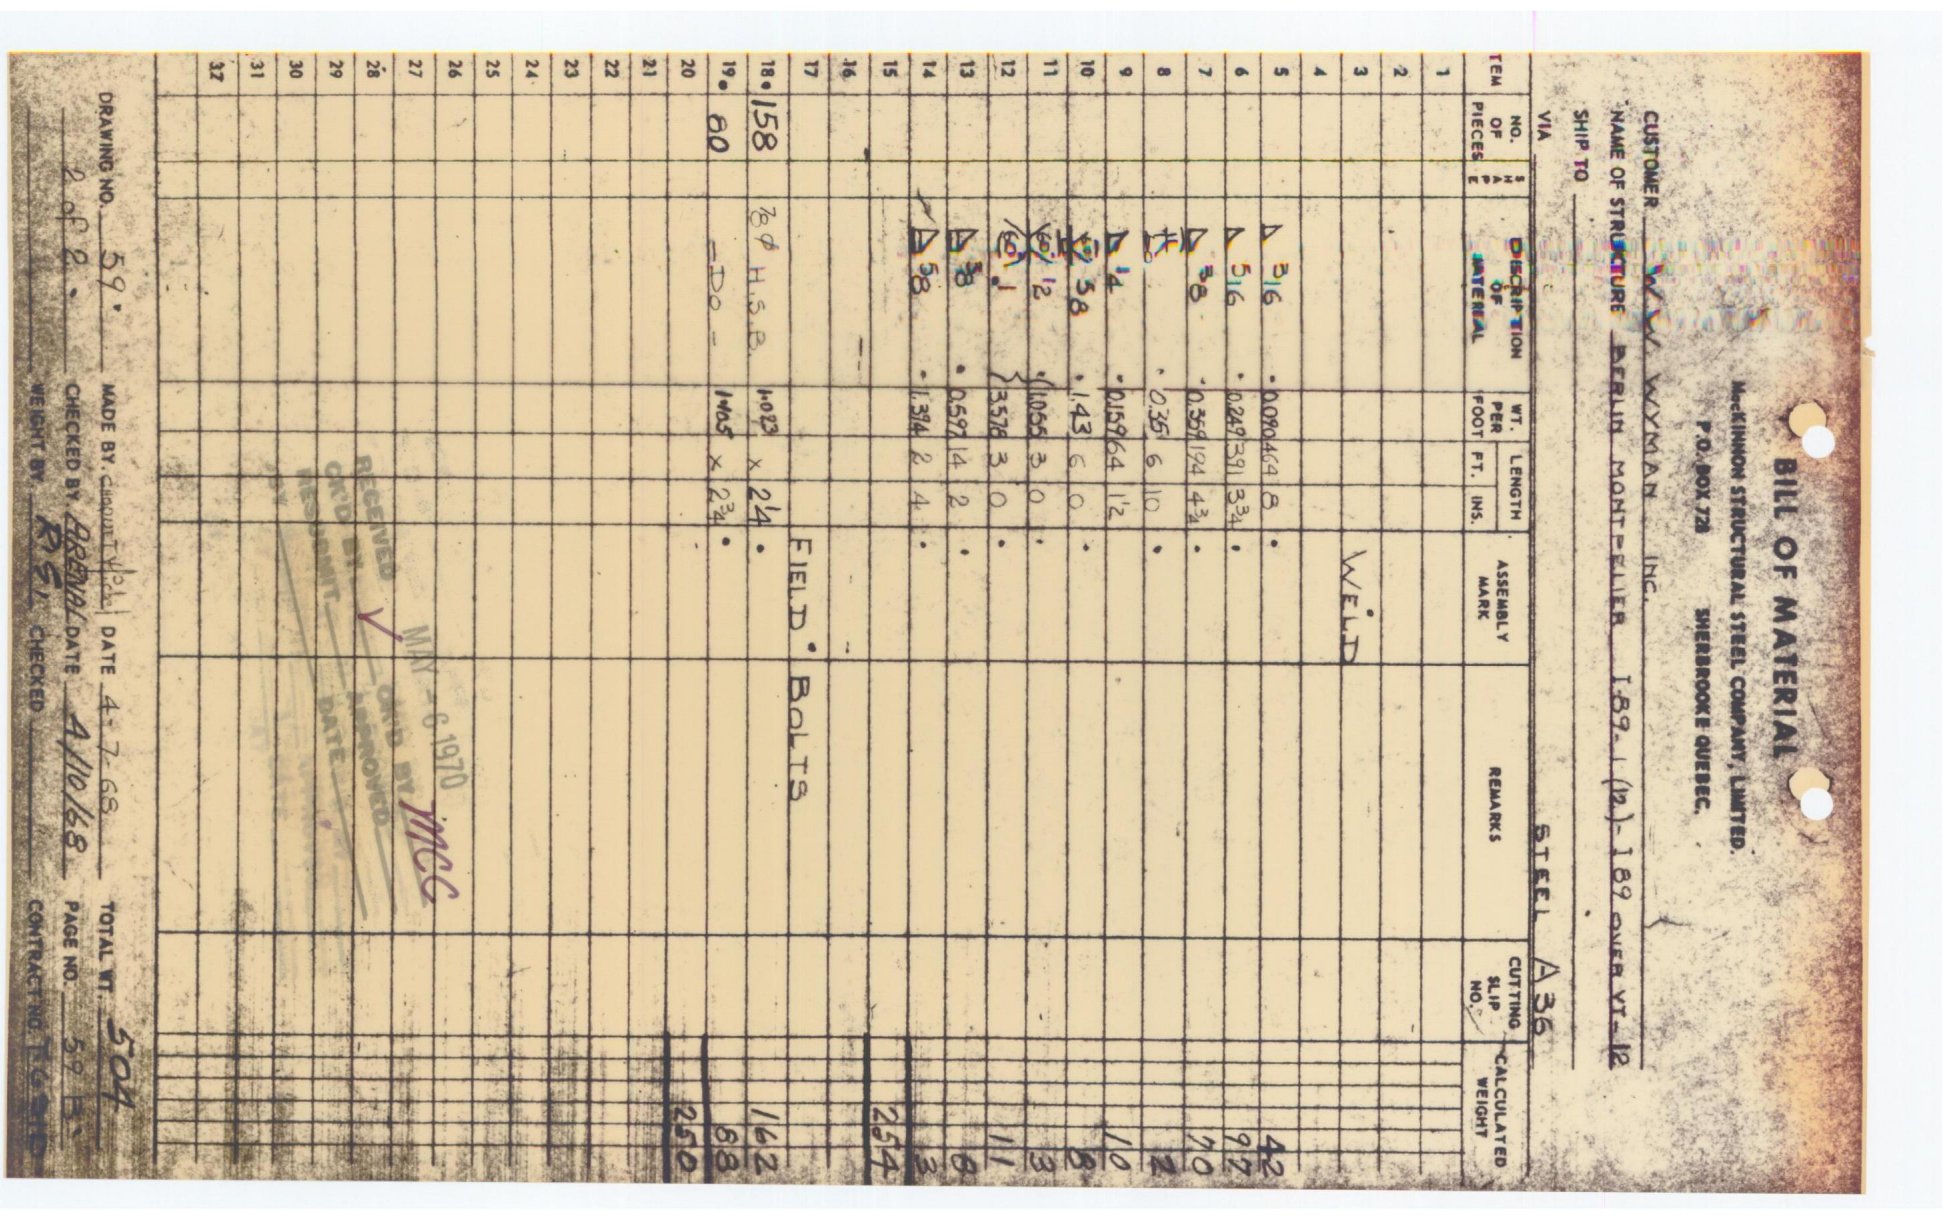 BILL OF MATERIAL
MacKINNON STRUCTURAL STEEL COMPANY, LIMITED.
P.O. BOX 728 SHERBROOKE QUEBEC.
CUSTOMER W.W. WYMAN INC.
NAME OF STRUCTURE BERLIN MONTPELIER I-89-1(12)-I89 OVER VT-12
SHIP TO
VIA STEEL A36
ITEM NO. OF PIECES SHAPE DESCRIPTION OF MATERIAL WT. PER FOOT LENGTH FT. INS. ASSEMBLY MARK REMARKS CUTTING SLIP NO. CALCULATED WEIGHT
1
2
3 WELD
4
5 3/16 0.090 464 8 42
6 5/16 0.249 391 3 3/4 97
7 3/8 0.359 194 4 3/4 70
8 0.35 6 10 2
9 1/4 0.159 64 1/2 10
10 5/8 1.43 6 0 8
11 60° 1/2 1.055 3 0 3
12 60° 1 3.578 3 0 11
13 3/8 0.597 14 2 8
14 5/8 1.394 2 4 3
15 254
16
17 FIELD BOLTS
18 158 7/8 Ø H.S.B. 1.023 x 2 1/4 162
19 80 -DO- 1.105 x 2 3/4 88
20 250
21
22
23
24
25
26
27
28
29
30
31
32
MAY - 6 1970
RECEIVED
OK'D BY OK'D BY MCC
RESUBMIT APPROVED
BY DATE
DRAWING NO. 59 MADE BY DATE 4-7-68 TOTAL WT. 504
2 of 2 CHECKED BY ARENAL DATE 4/10/68 PAGE NO. 59 B
WEIGHT BY R.S. CHECKED CONTRACT NO.